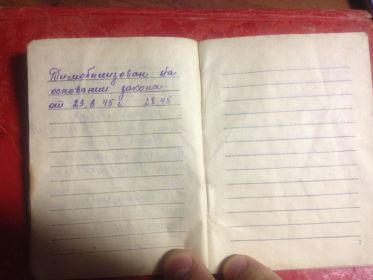 Демобилизован на
основании закона
от 23. 6 45 г 23.45